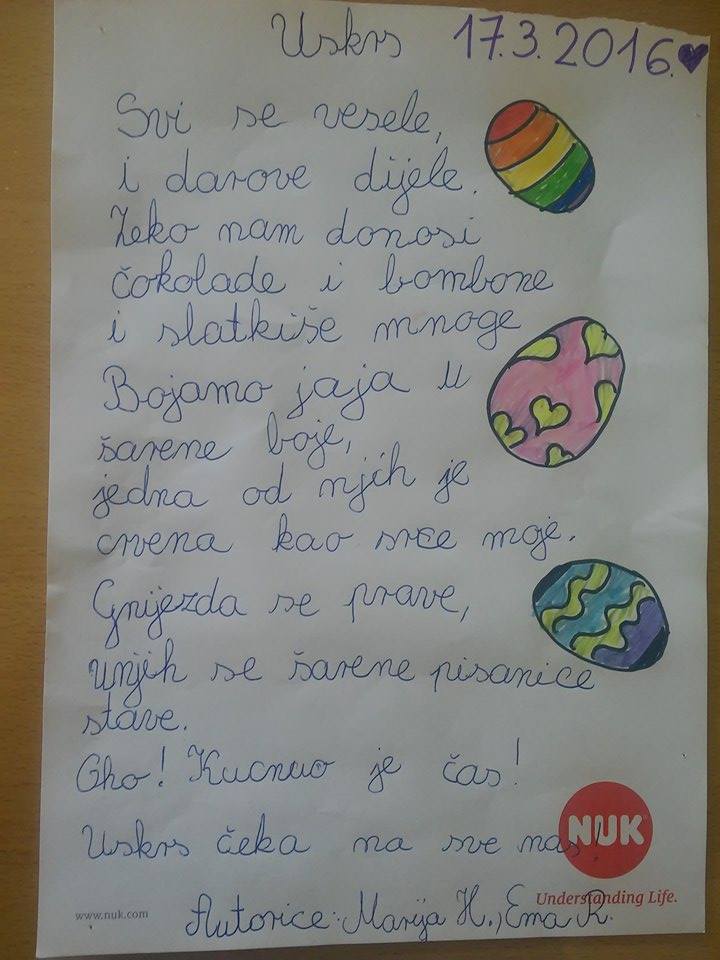 Uskrs 17.3.2016.
Svi se vesele,
i darove dijele.
Zeko nam donosi
čokolade i bombone
i slatkiše mnoge
Bojamo jaja u
šarene boje,
jedna od njih je
crvena kao srce moje.
Gnijezda se prave,
unjih se šarene pisanice
stave.
Oho! Kucnuo je čas!
Uskrs čeka na sve nas!
NUK
Understanding Life.
www.nuk.com
Autorice: Marija H., Ema R.